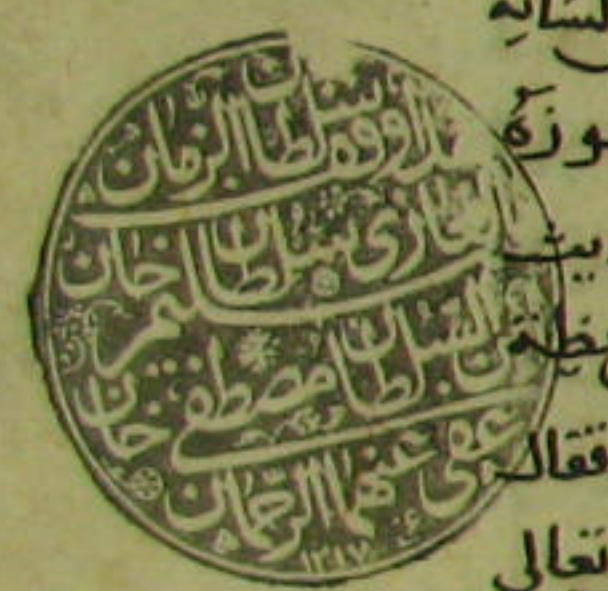 هذا وقف سلطان الزمان
الغازي سلطان سليم خان
بن السلطان مصطفى خان
عفى عنهما الرحمان
١٢١٧
فقال
تعالى